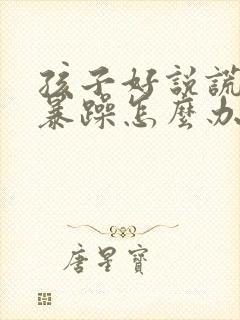 孩子好説謊
暴躁怎麼办
唐星寶